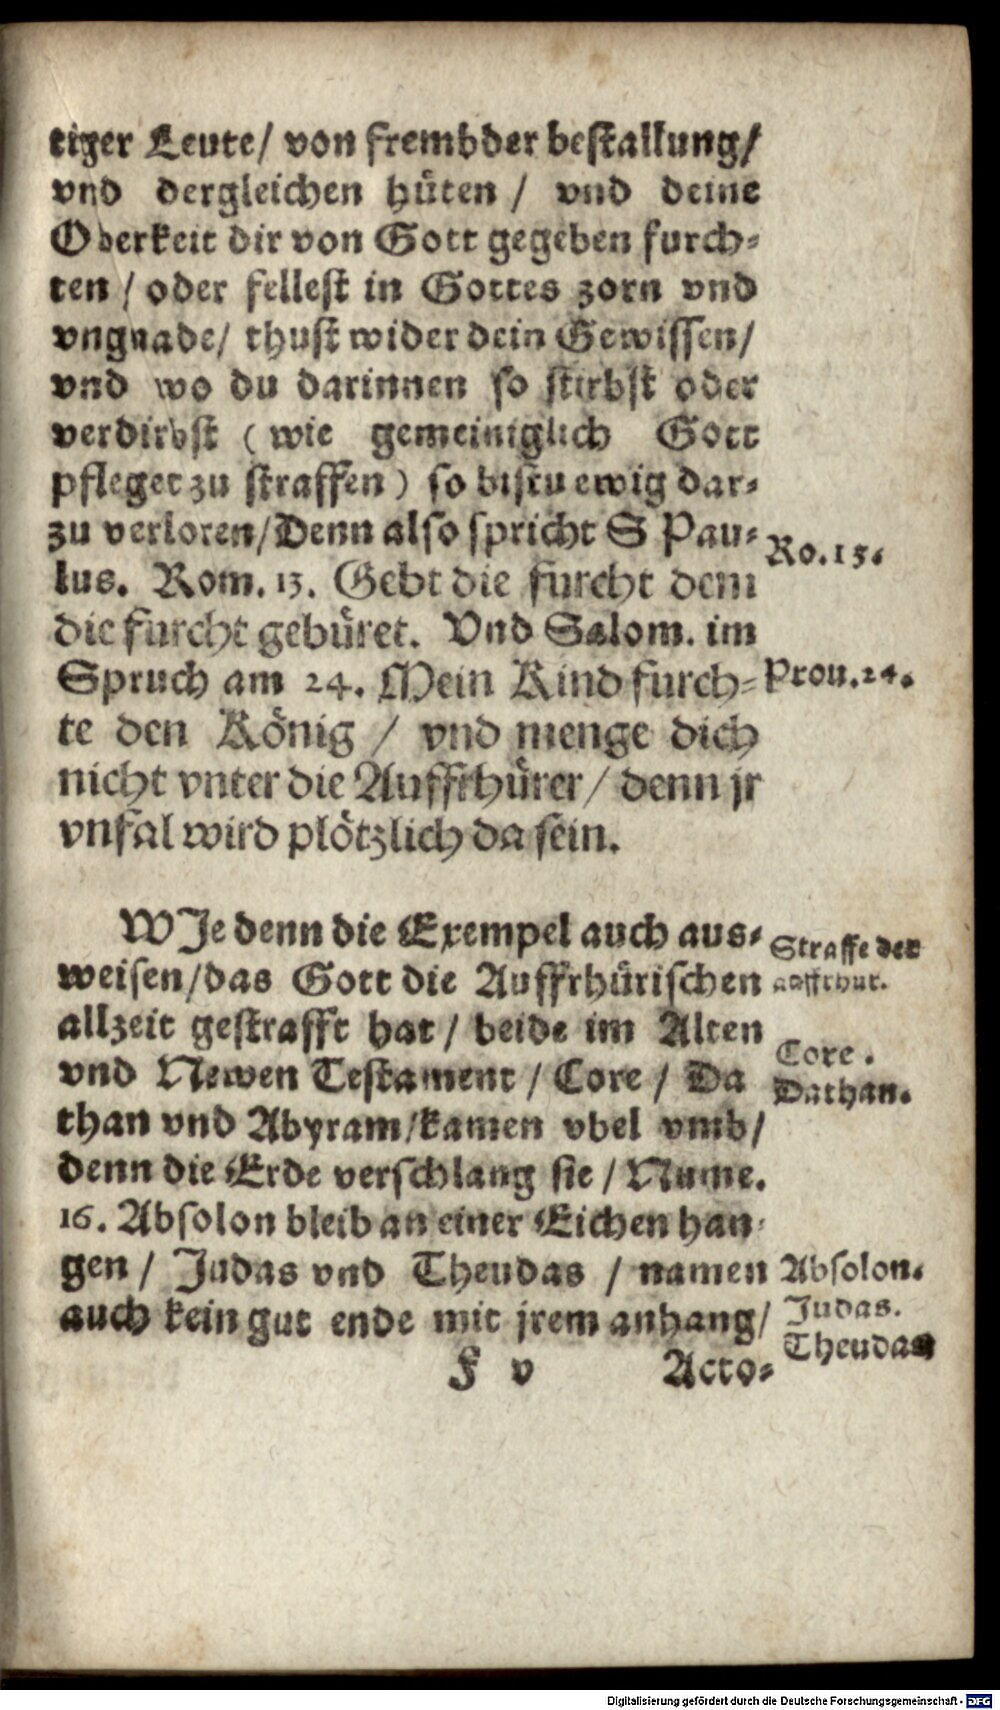 tiger Leute/ von frembder bestallung/
vnd dergleichen hüten / vnd deine
Oberkeit dir von Gott gegeben furch-
ten / oder fellest in Gottes zorn vnd
vngnade/ thust wider dein Gewissen/
vnd wo du darinnen so stirbst oder
verdirbst (wie gemeiniglich Gott
pfleget zu straffen) so bistu ewig dar-
zu verloren/Denn also spricht S Pau-
Ro.13.
lus. Rom. 13. Gebt die furcht dem
die furcht gebüret. Vnd Salom. im
Spruch am 24. Mein Kind furch-
Prou.24.
te den König / vnd menge dich
nicht vnter die Auffrhürer/ denn jr
vnfal wird plötzlich da sein.
WJe denn die Exempel auch aus-
Straffe der
weisen/das Gott die Auffrhürischen
auffrhur.
allzeit gestrafft hat / beide im Alten
Core.
vnd Newen Testament / Core / Da
Dathan.
than vnd Abyram/kamen vbel vmb/
denn die Erde verschlang sie / Nume.
16. Absolon bleib an einer Eichen han-
gen / Judas vnd Theudas / namen
Absolon.
auch kein gut ende mit jrem anhang/
Judas.
Theudas
F v
Acto-
Digitalisierung gefördert durch die Deutsche Forschungsgemeinschaft - DFG